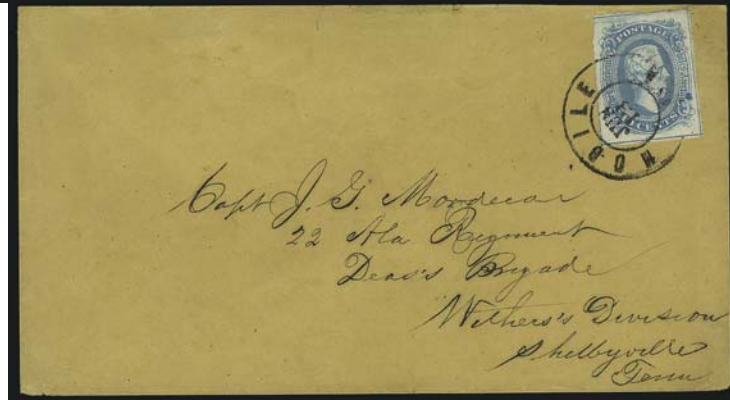 POSTAGE
CENTS
MOBILE
JUN
Capt J. G. Mordecai
22 Ala Regiment
Deas's Brigade
Withers's Division
Shelbyville
Tenn